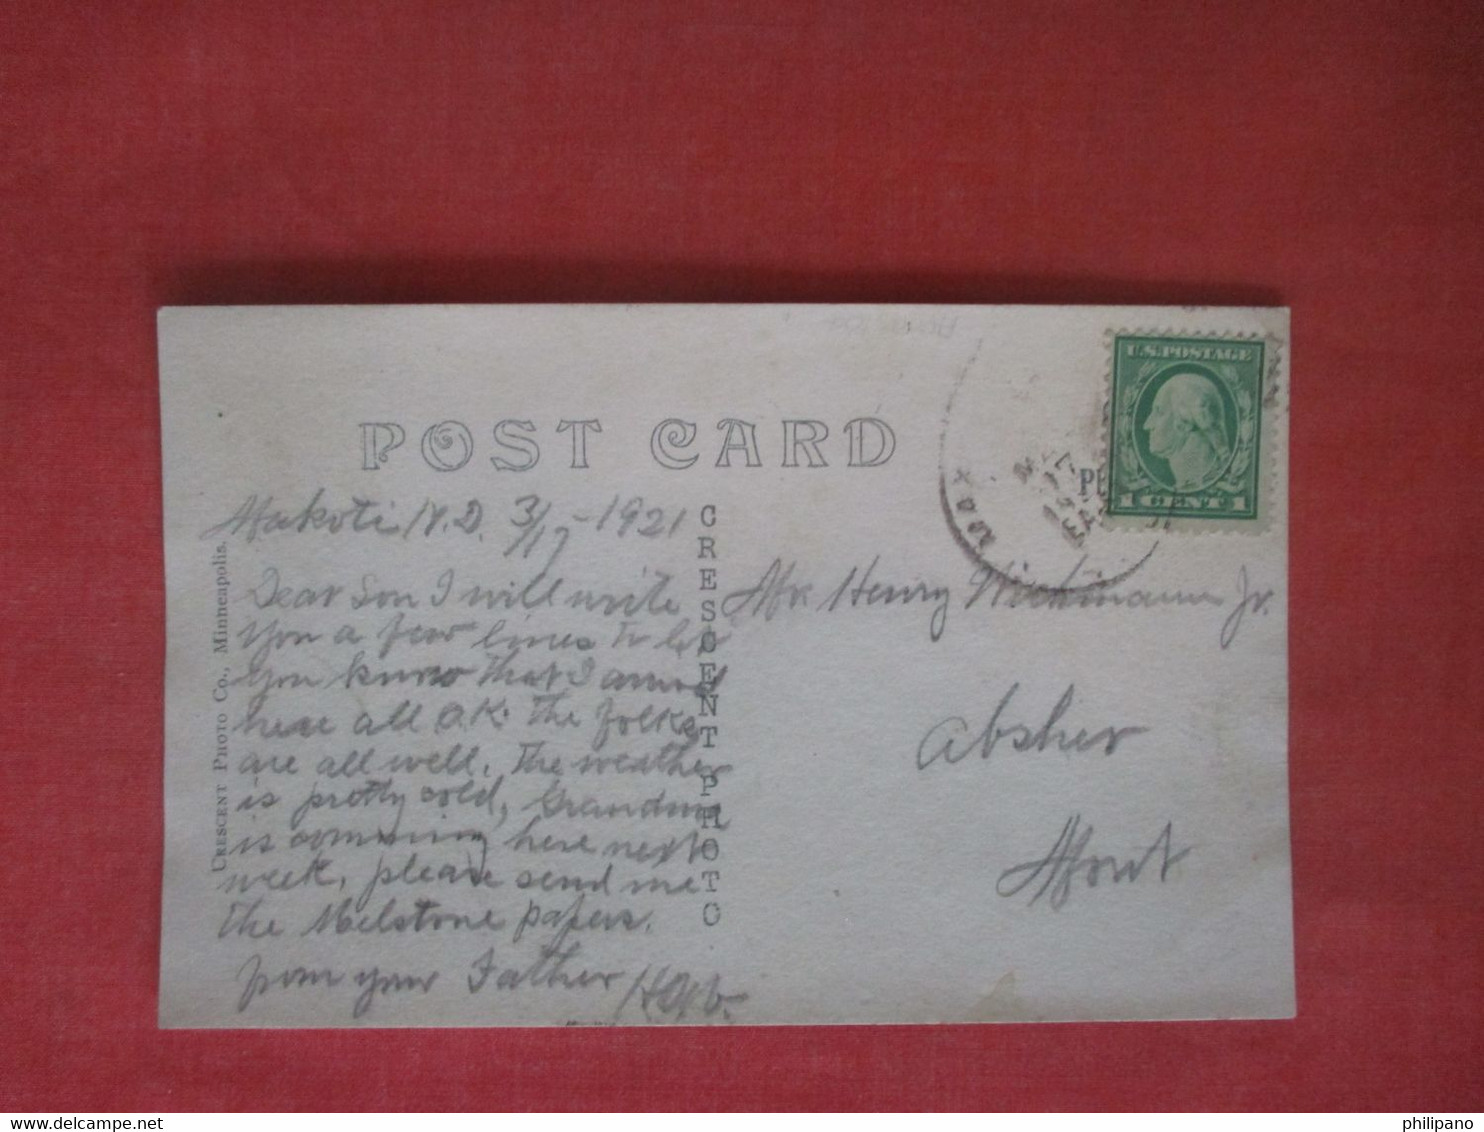 POST CARD
Makoti N.D. 3/17-1921
Dear Son I will write
you a few lines to let
you know that I arrived
here all O.K. The folks
are all well. The weather
is pretty cold, Grandma
is comming here next
week, please send me
the Melstone papers.
from your Father HW.
CRESCENT PHOTO CO., Minneapolis.
CRESCENT PHOTO
U.S. POSTAGE
1 CENT 1
MA
17
Mr. Henry Wichmann Jr.
Absher
Mont
delcampe.net
philipano